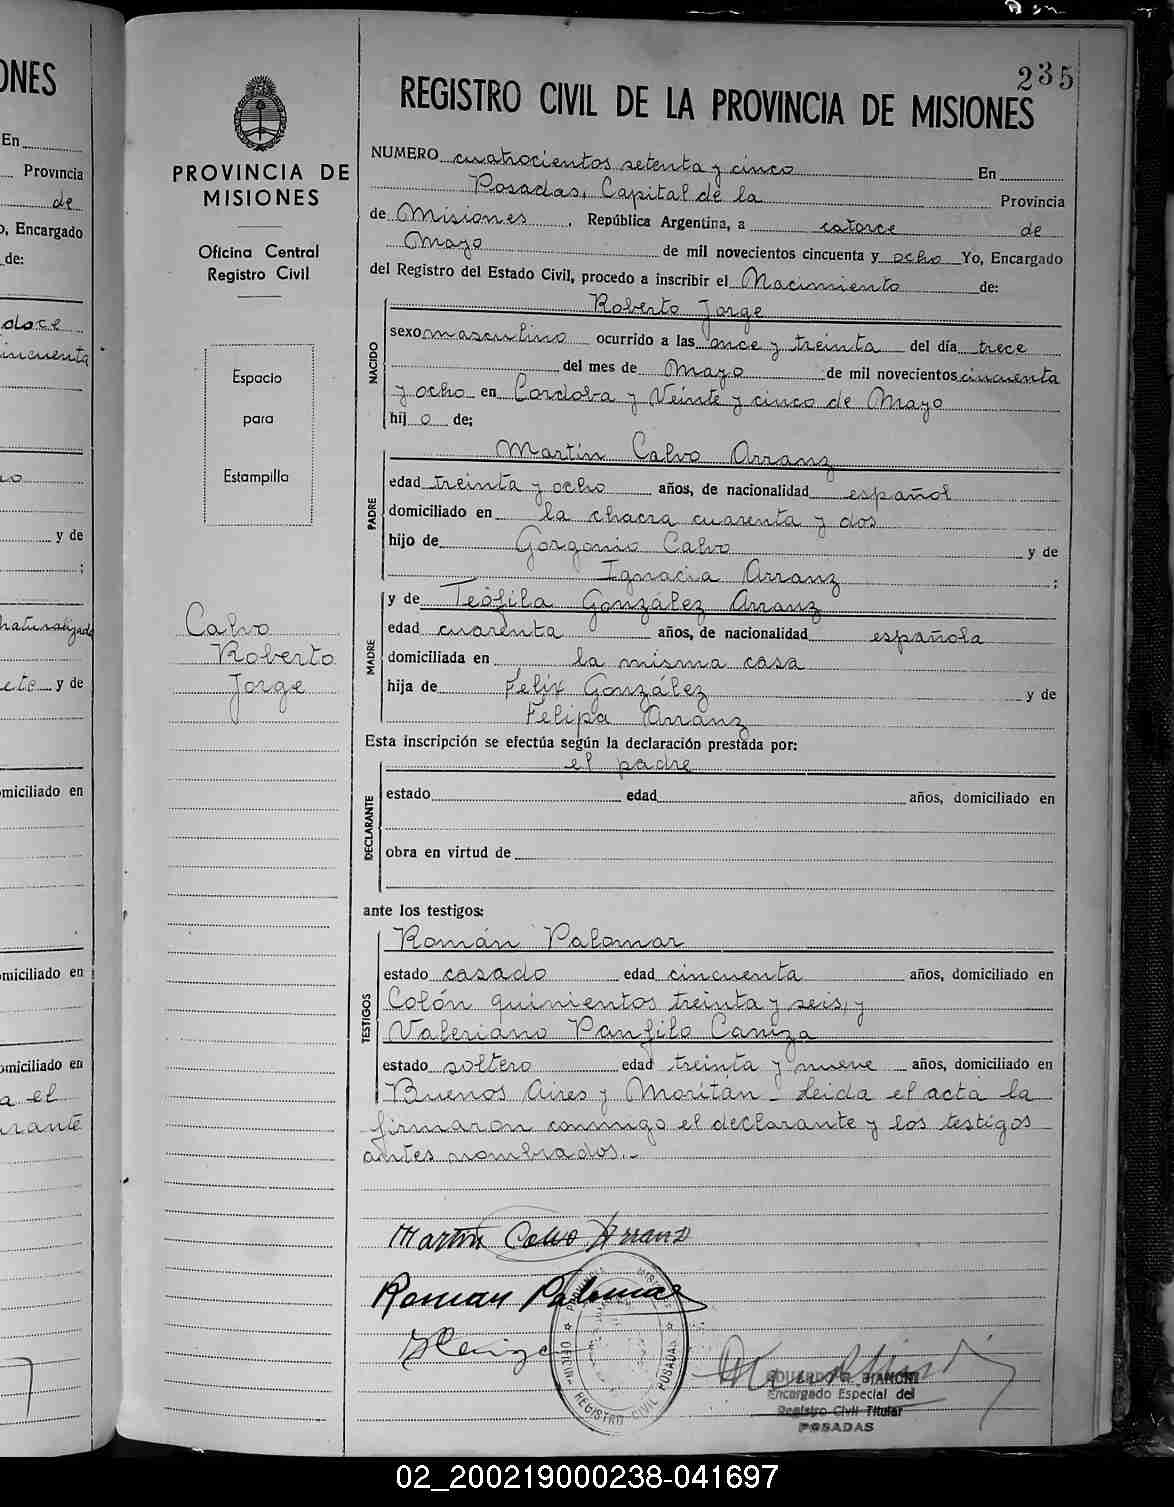 ONES
En
Provincia
de
o, Encargado
de:
doce
incuenta
y de
naturalizado
ete y de
omiciliado en
omiciliado en
omiciliado en
a el
arante
PROVINCIA DE
MISIONES
Oficina Central
Registro Civil
Espacio
para
Estampilla
Calvo
Roberto
Jorge
235
REGISTRO CIVIL DE LA PROVINCIA DE MISIONES
NUMERO cuatrocientos setenta y cinco En
Posadas, Capital de la Provincia
de Misiones, República Argentina, a catorce de
Mayo de mil novecientos cincuenta y ocho Yo, Encargado
del Registro del Estado Civil, procedo a inscribir el Nacimiento de:
NACIDO
Roberto Jorge
sexo masculino ocurrido a las once y treinta del día trece
del mes de Mayo de mil novecientos cincuenta
y ocho en Cordoba y Veinte y cinco de Mayo
hij o de;
PADRE
Martín Calvo Arranz
edad treinta y ocho años, de nacionalidad español
domiciliado en la chacra cuarenta y dos
hijo de Gorgonio Calvo y de
Ignacia Arranz ;
MADRE
y de Teófila González Arranz
edad cuarenta años, de nacionalidad española
domiciliada en la misma casa
hija de Felix González y de
Felipa Arranz
Esta inscripción se efectúa según la declaración prestada por:
DECLARANTE
el padre
estado edad años, domiciliado en
obra en virtud de
ante los testigos:
TESTIGOS
Román Palomar
estado casado edad cincuenta años, domiciliado en
Colón quinientos treinta y seis, y
Valeriano Panfilo Caniza
estado soltero edad treinta y nueve años, domiciliado en
Buenos Aires y Moritán - Leida el acta la
firmaron conmigo el declarante y los testigos
antes nombrados.-
Martín Calvo Arranz
Roman Palomar
PROVINCIA MISIONES
OFICINA REGISTRO CIVIL POSADAS
EDUARDO R. BIANCHI
Encargado Especial del
Registro Civil Titular
POSADAS
02_200219000238-041697